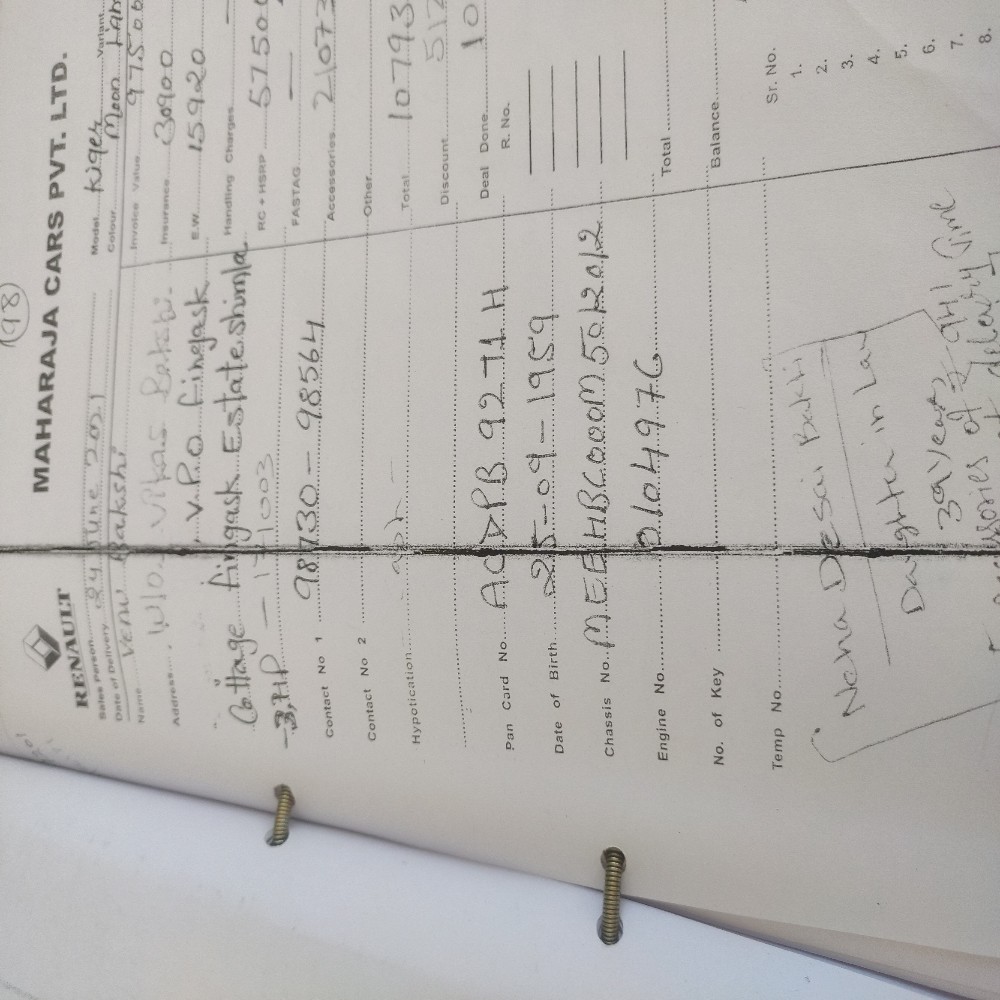 98
MAHARAJA CARS PVT. LTD.
RENAULT
Sales Person 24 June 2021
Date of Delivery
Name Venu Bakshi
W/o Vikas Bakshi
Address V.P.O fingask
Cottage fingask Estate shimla
H.P - 171003
Contact No 1 98730-98564
Contact No 2
Hypotication
Pan Card No. ACDPB 9271 H
Date of Birth 25-09-1959
Chassis No. MEEHBC000M5012012
Engine No.
No. of Key
Temp No.
Model Kiger Variant
Colour Moon
Invoice Value 97500
Insurance 30900
E.W. 15920
Handling Charges
RC + HSRP 57500
FASTAG —
Accessories 21073
Other
Total 10793
Discount 512
Deal Done 10
R. No.
Total
Balance
Sr. No.
1.
2.
3.
4.
5.
6.
7.
8.
Neha Desai Bakhi
Daughter in Law
39/years
of
delivery